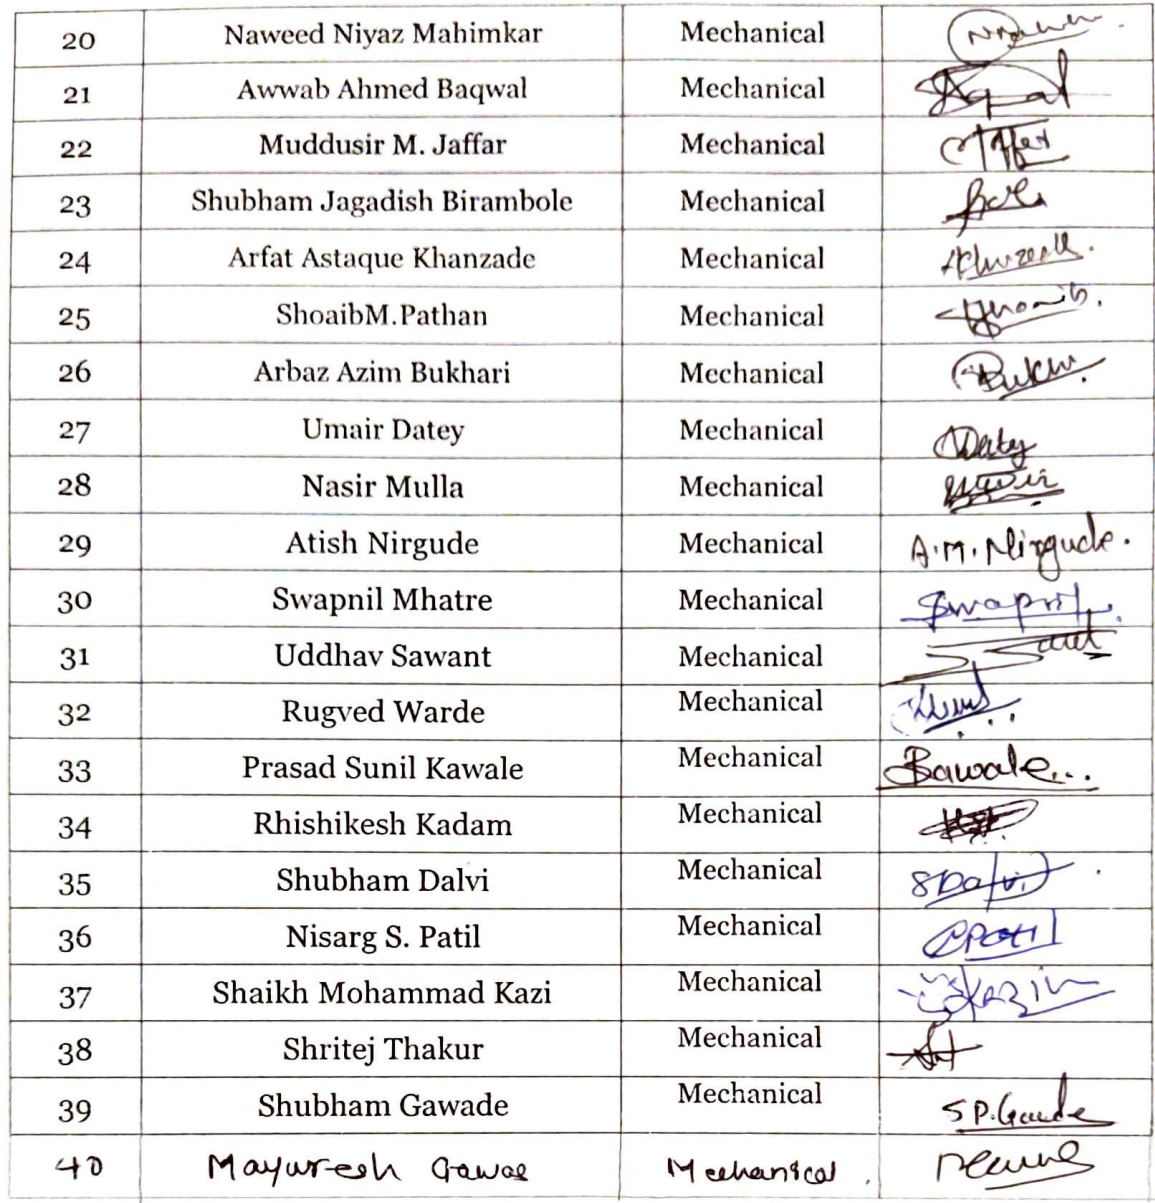 20 Naweed Niyaz Mahimkar Mechanical
21 Awwab Ahmed Baqwal Mechanical
22 Muddusir M. Jaffar Mechanical
23 Shubham Jagadish Birambole Mechanical
24 Arfat Astaque Khanzade Mechanical
25 ShoaibM.Pathan Mechanical
26 Arbaz Azim Bukhari Mechanical
27 Umair Datey Mechanical Datey
28 Nasir Mulla Mechanical
29 Atish Nirgude Mechanical A.M. Nirgude.
30 Swapnil Mhatre Mechanical Swapnil
31 Uddhav Sawant Mechanical
32 Rugved Warde Mechanical
33 Prasad Sunil Kawale Mechanical
34 Rhishikesh Kadam Mechanical
35 Shubham Dalvi Mechanical SDalvi
36 Nisarg S. Patil Mechanical
37 Shaikh Mohammad Kazi Mechanical
38 Shritej Thakur Mechanical
39 Shubham Gawade Mechanical
40 Mayuresh Gawas Mechanical